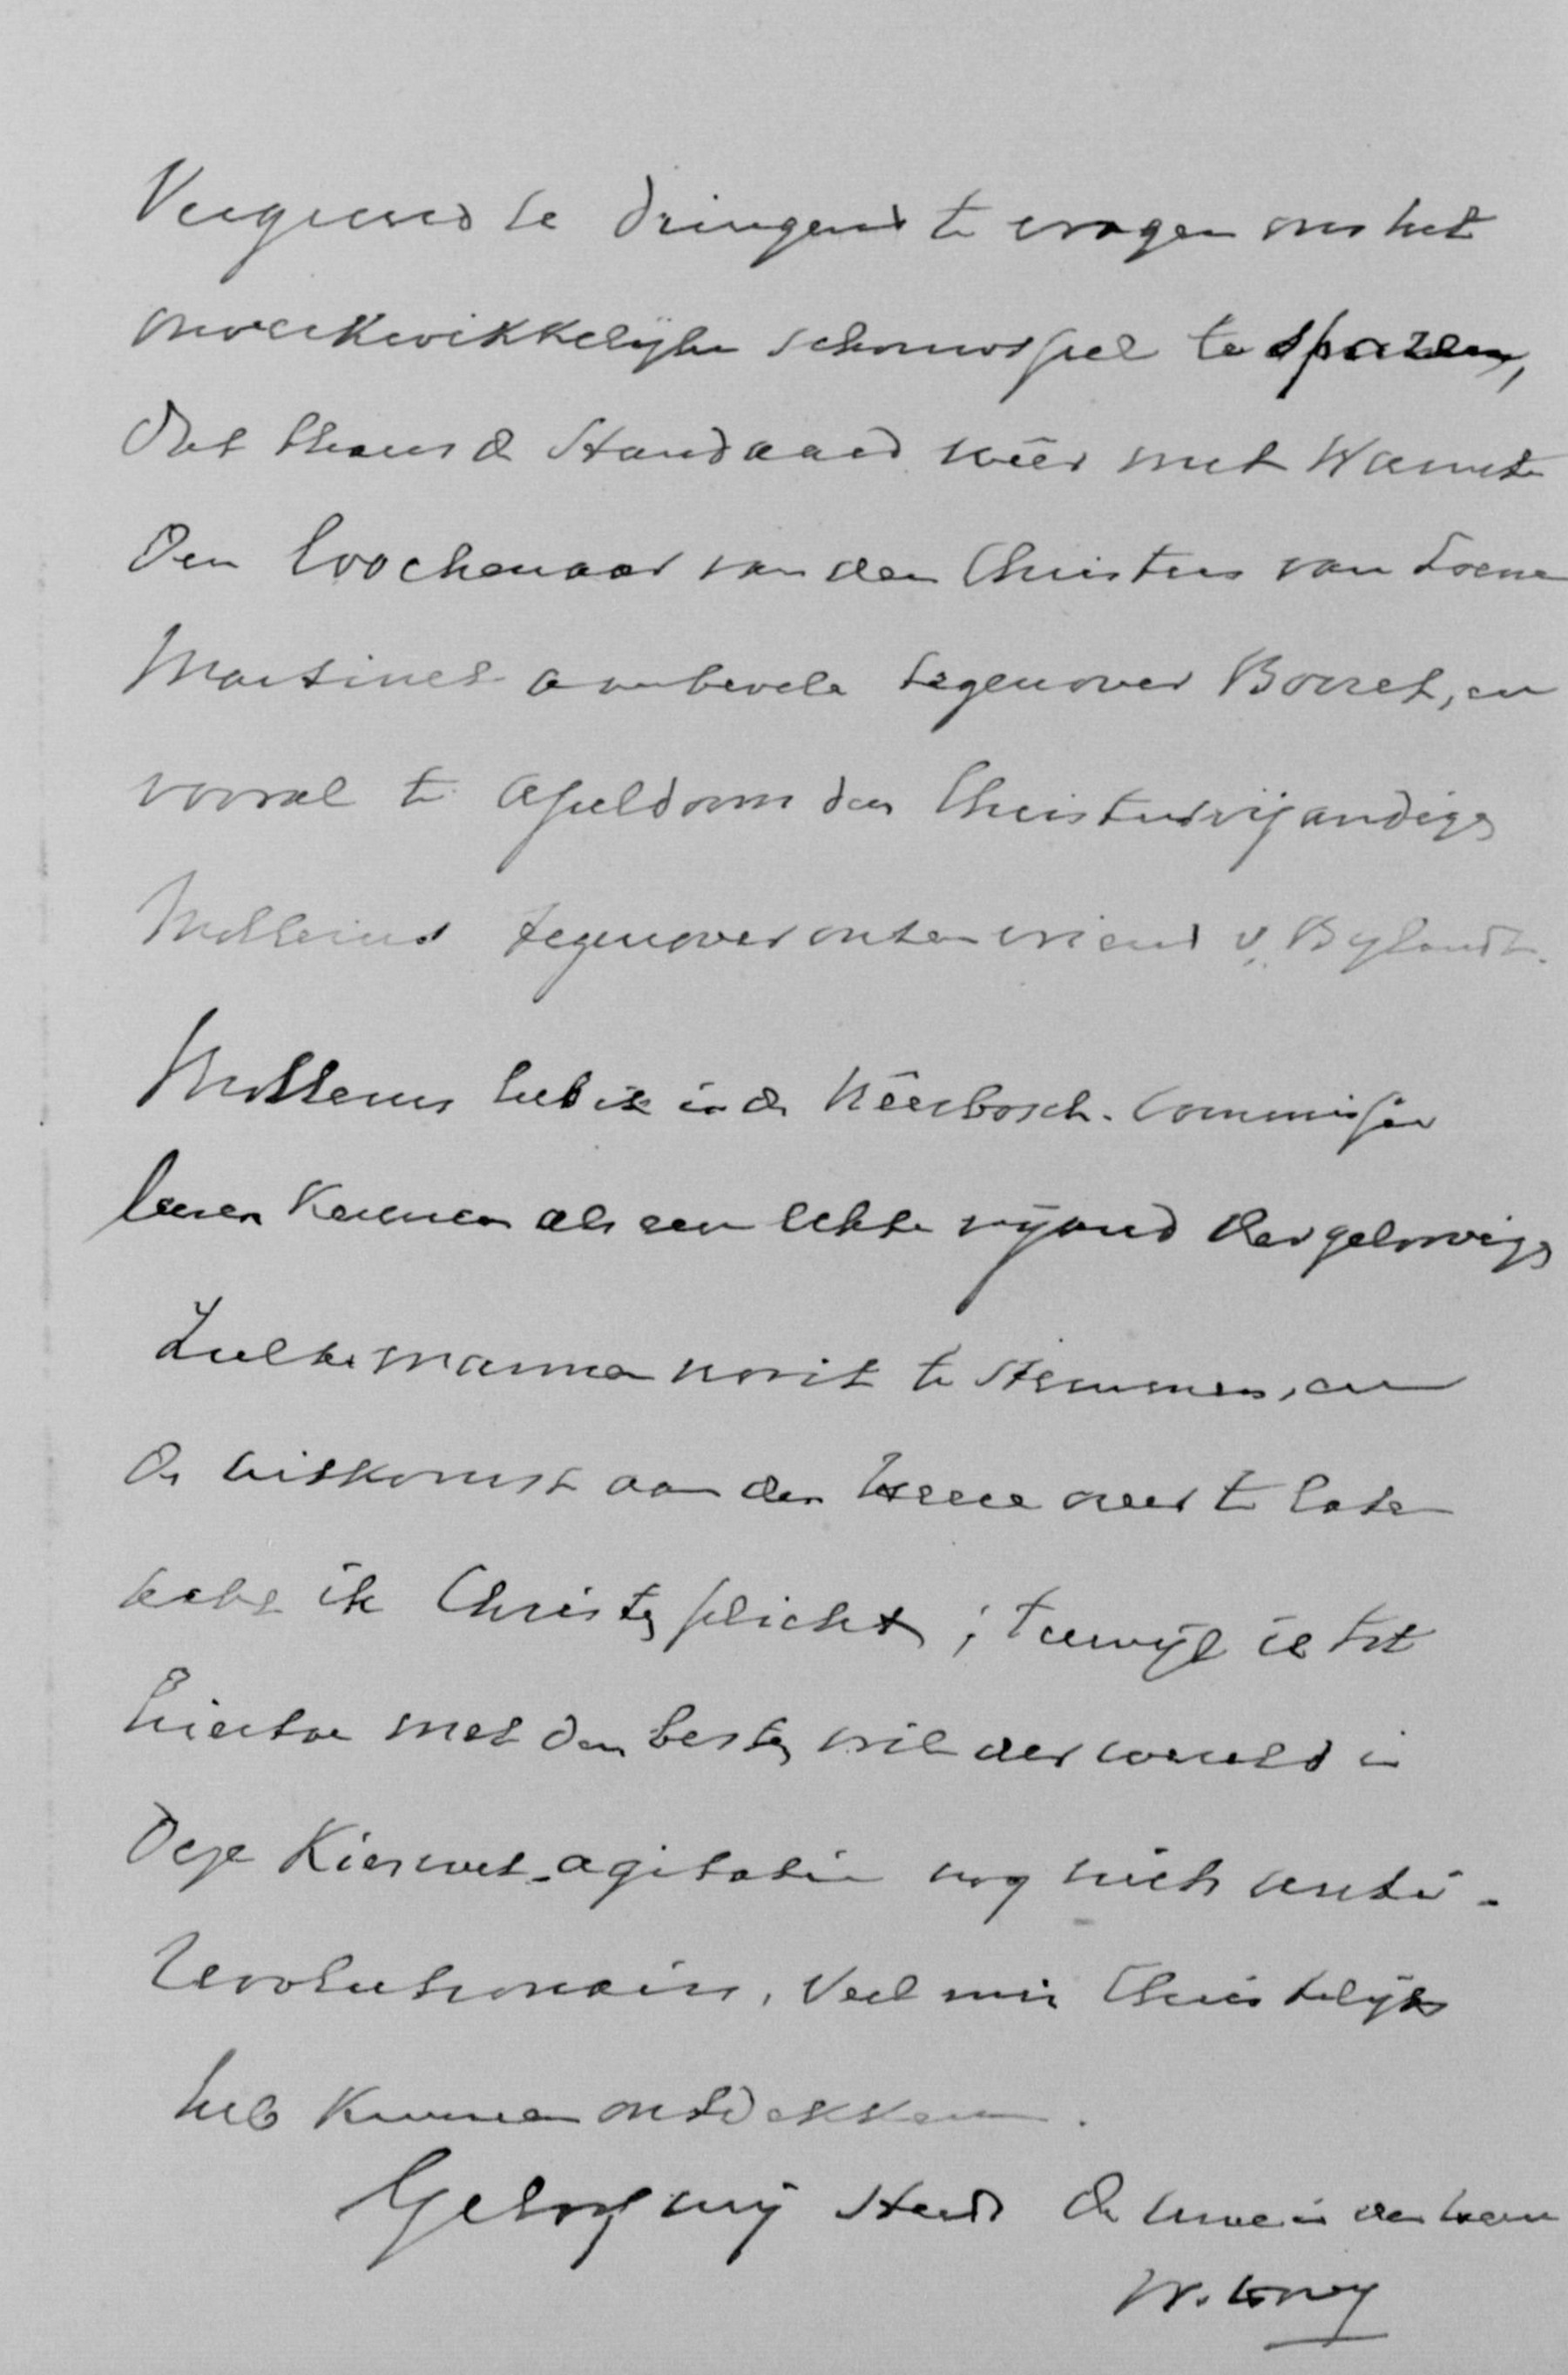 Vergund te dringend te vragen ons het
onverkwikkelijke schouwspel te sparen,
dat thans de Standaard wéér met warmte
den loochenaar van den Christus van Loenen
Martinet aanbevele tegenover Borret, en
vooral te Apeldoorn den Christusvijandigen
Mollerus tegenover onzen vriend v. Bylandt.
Mollerus heb ik in de Neerbosch-commissie
leeren kennen als een echte vijand der geloovigen
Zulke mannen nooit te stemmen, en
de uitkomst aan den Heere over te laten
acht ik Christenplicht; terwijl ik tot
hiertoe met den besten wil der wereld in
deze Kieswet-agitatie nog niets anti-
revolutionairs, veel min Christelijks
heb kunnen ontdekken.
Geloof mij steeds de Uwe in den Heere